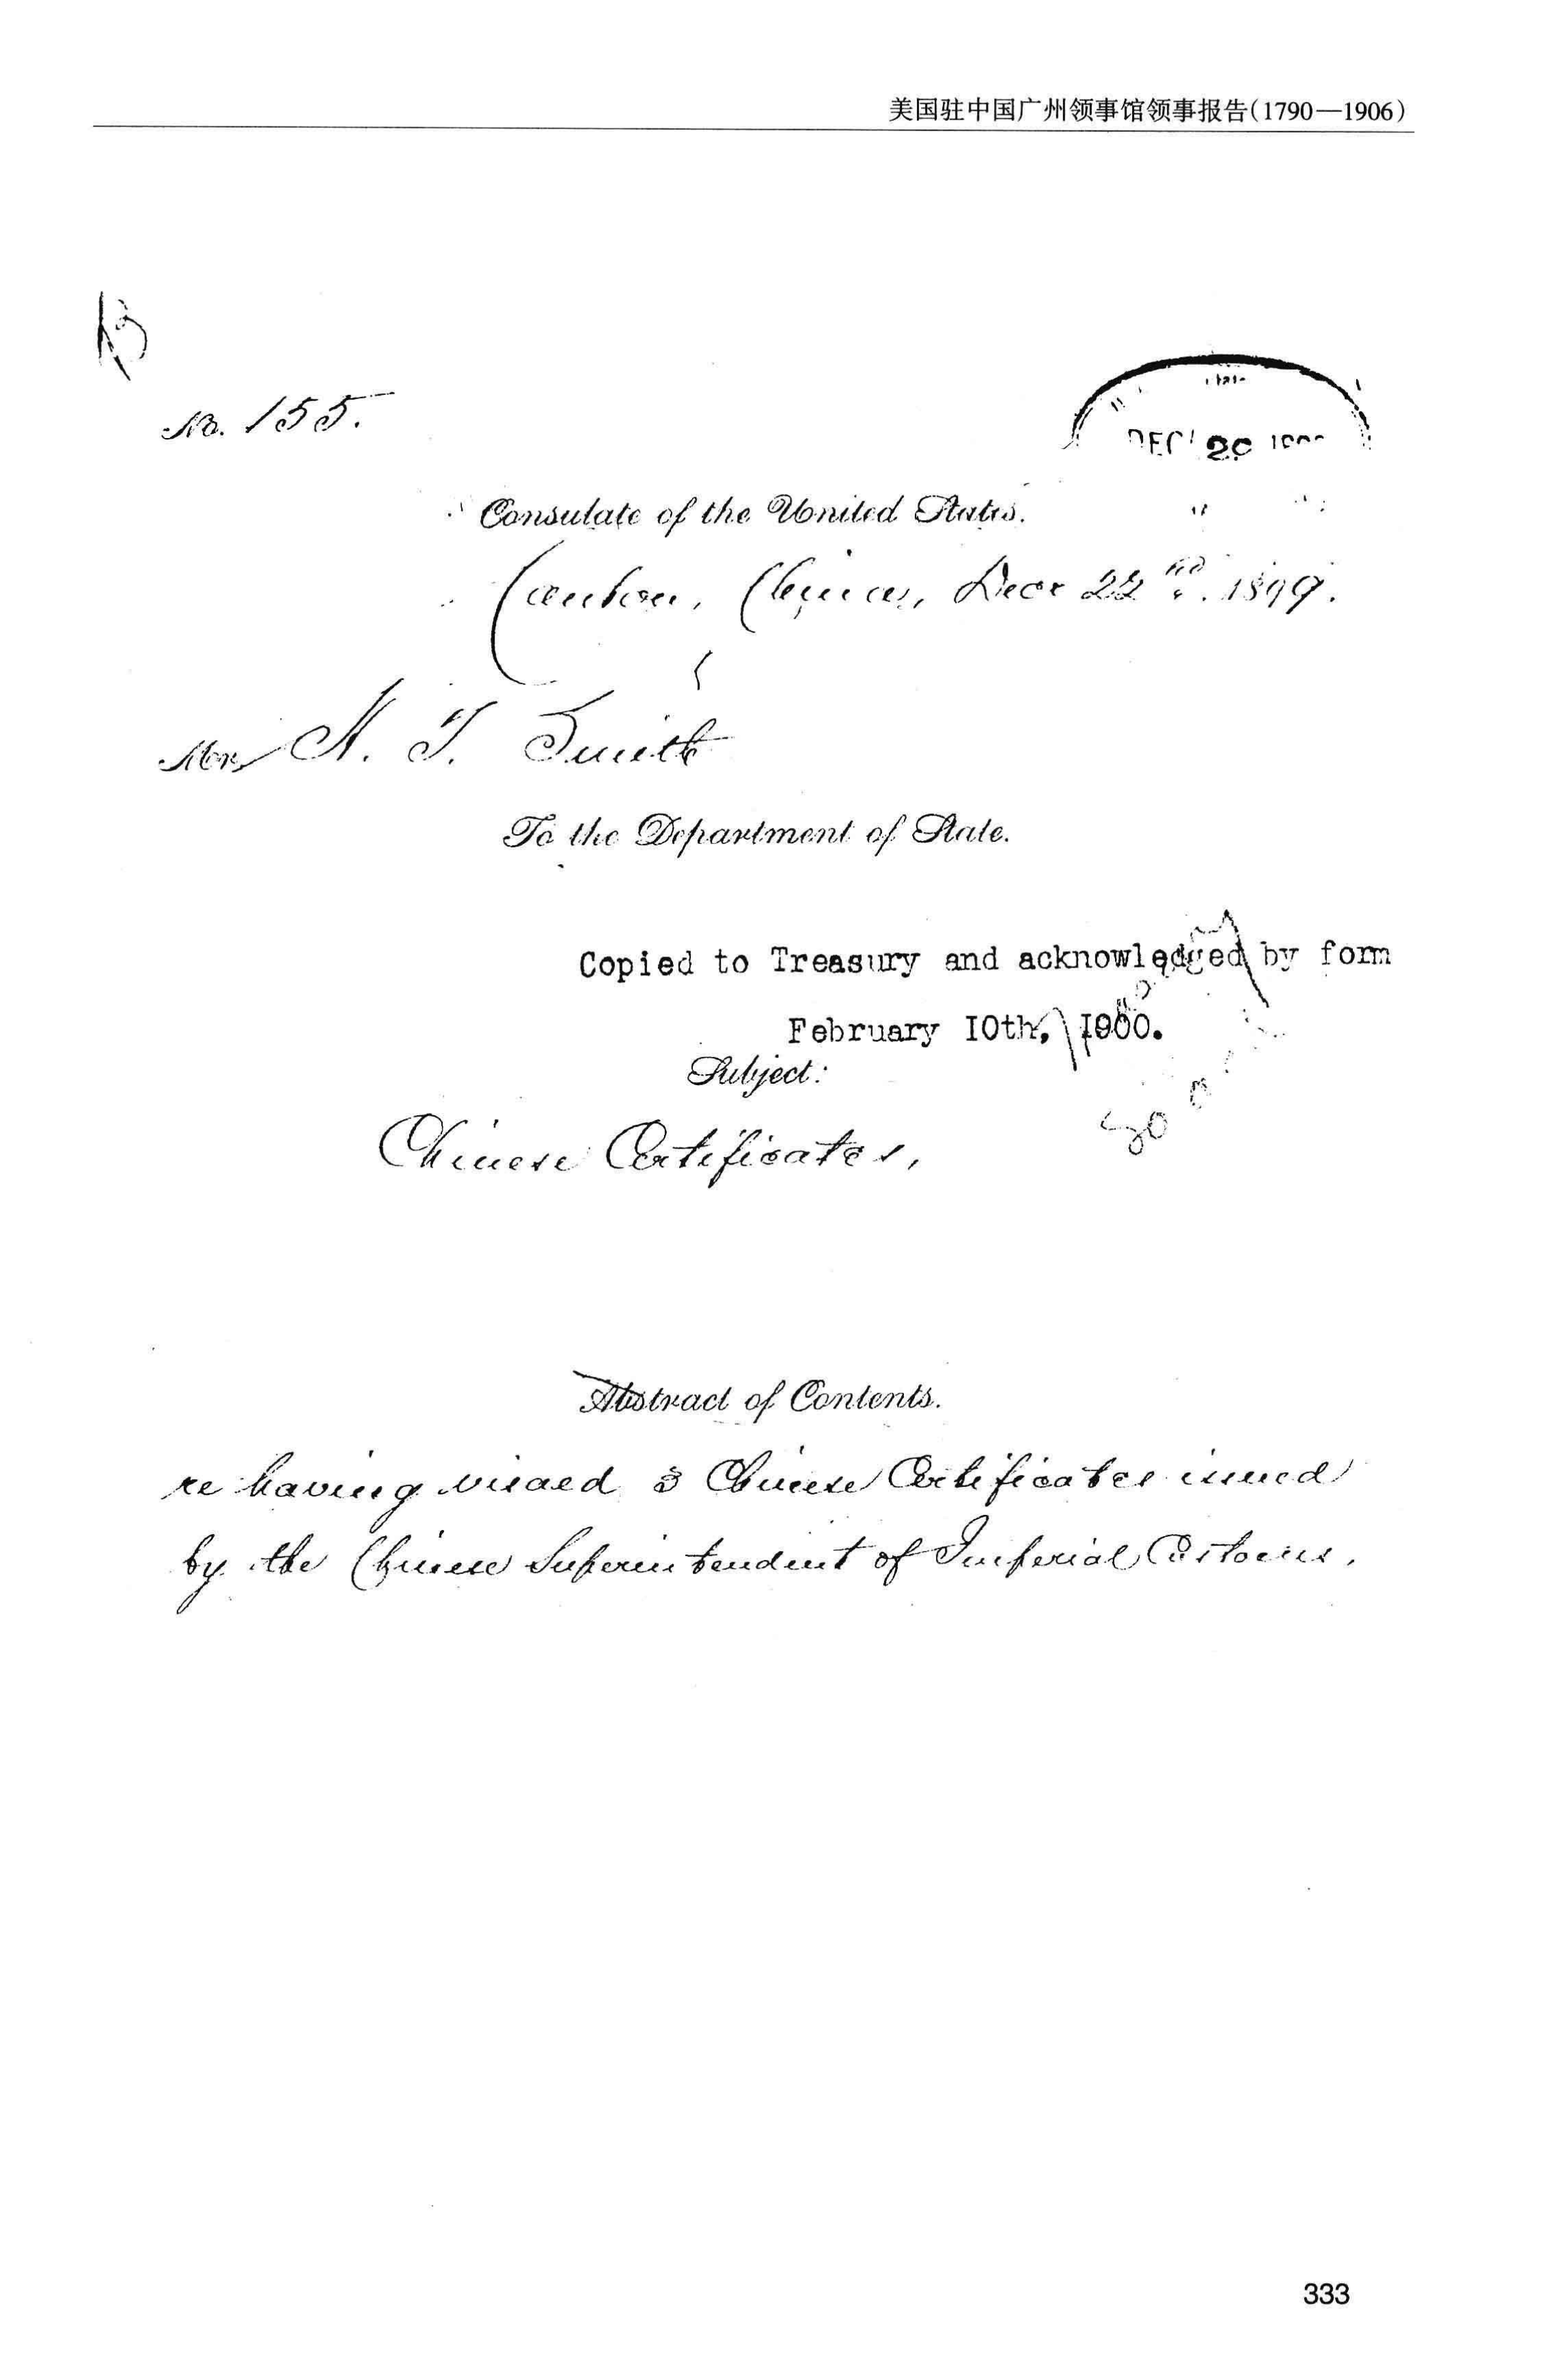 美国驻中国广州领事馆领事报告(1790—1906)
No. 155.
DEC 20
Consulate of the United States.
Canton, China, Decr 22nd. 1899.
Mr. S. T. Smith
To the Department of State.
Copied to Treasury and acknowledged by form
February 10th, 1900.
Subject:
Chinese Certificates,
Abstract of Contents.
re having visaed 3 Chinese Certificates issued
by the Chinese Superintendent of Imperial Customs.
333